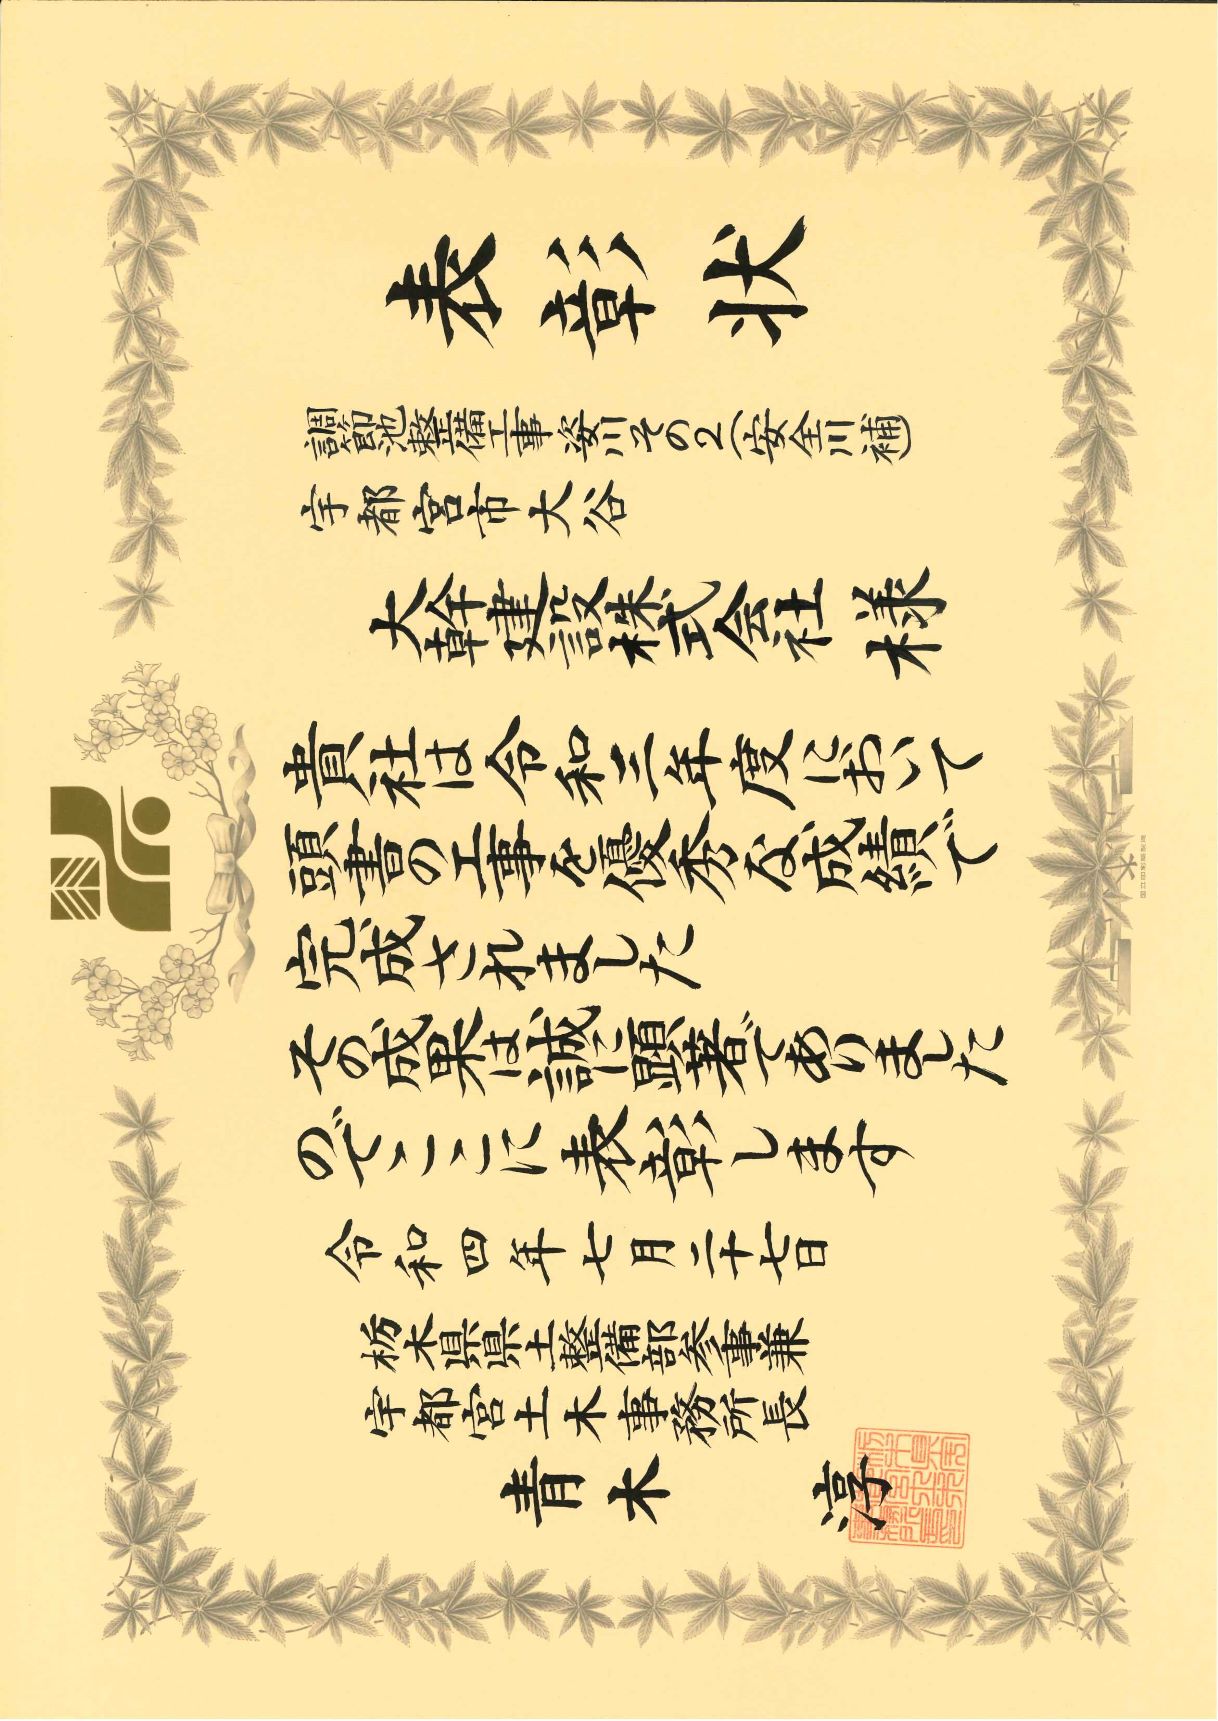 表彰状
調節池整備工事姿川その2(安全川補)
宇都宮市大谷
大幹建設株式会社 様
貴社は令和三年度において
頭書の工事を優秀な成績で
完成されました
その成果は誠に顕著でありました
のでここに表彰します
令和四年七月二十七日
栃木県県土整備部参事兼
宇都宮土木事務所長
青木 淳